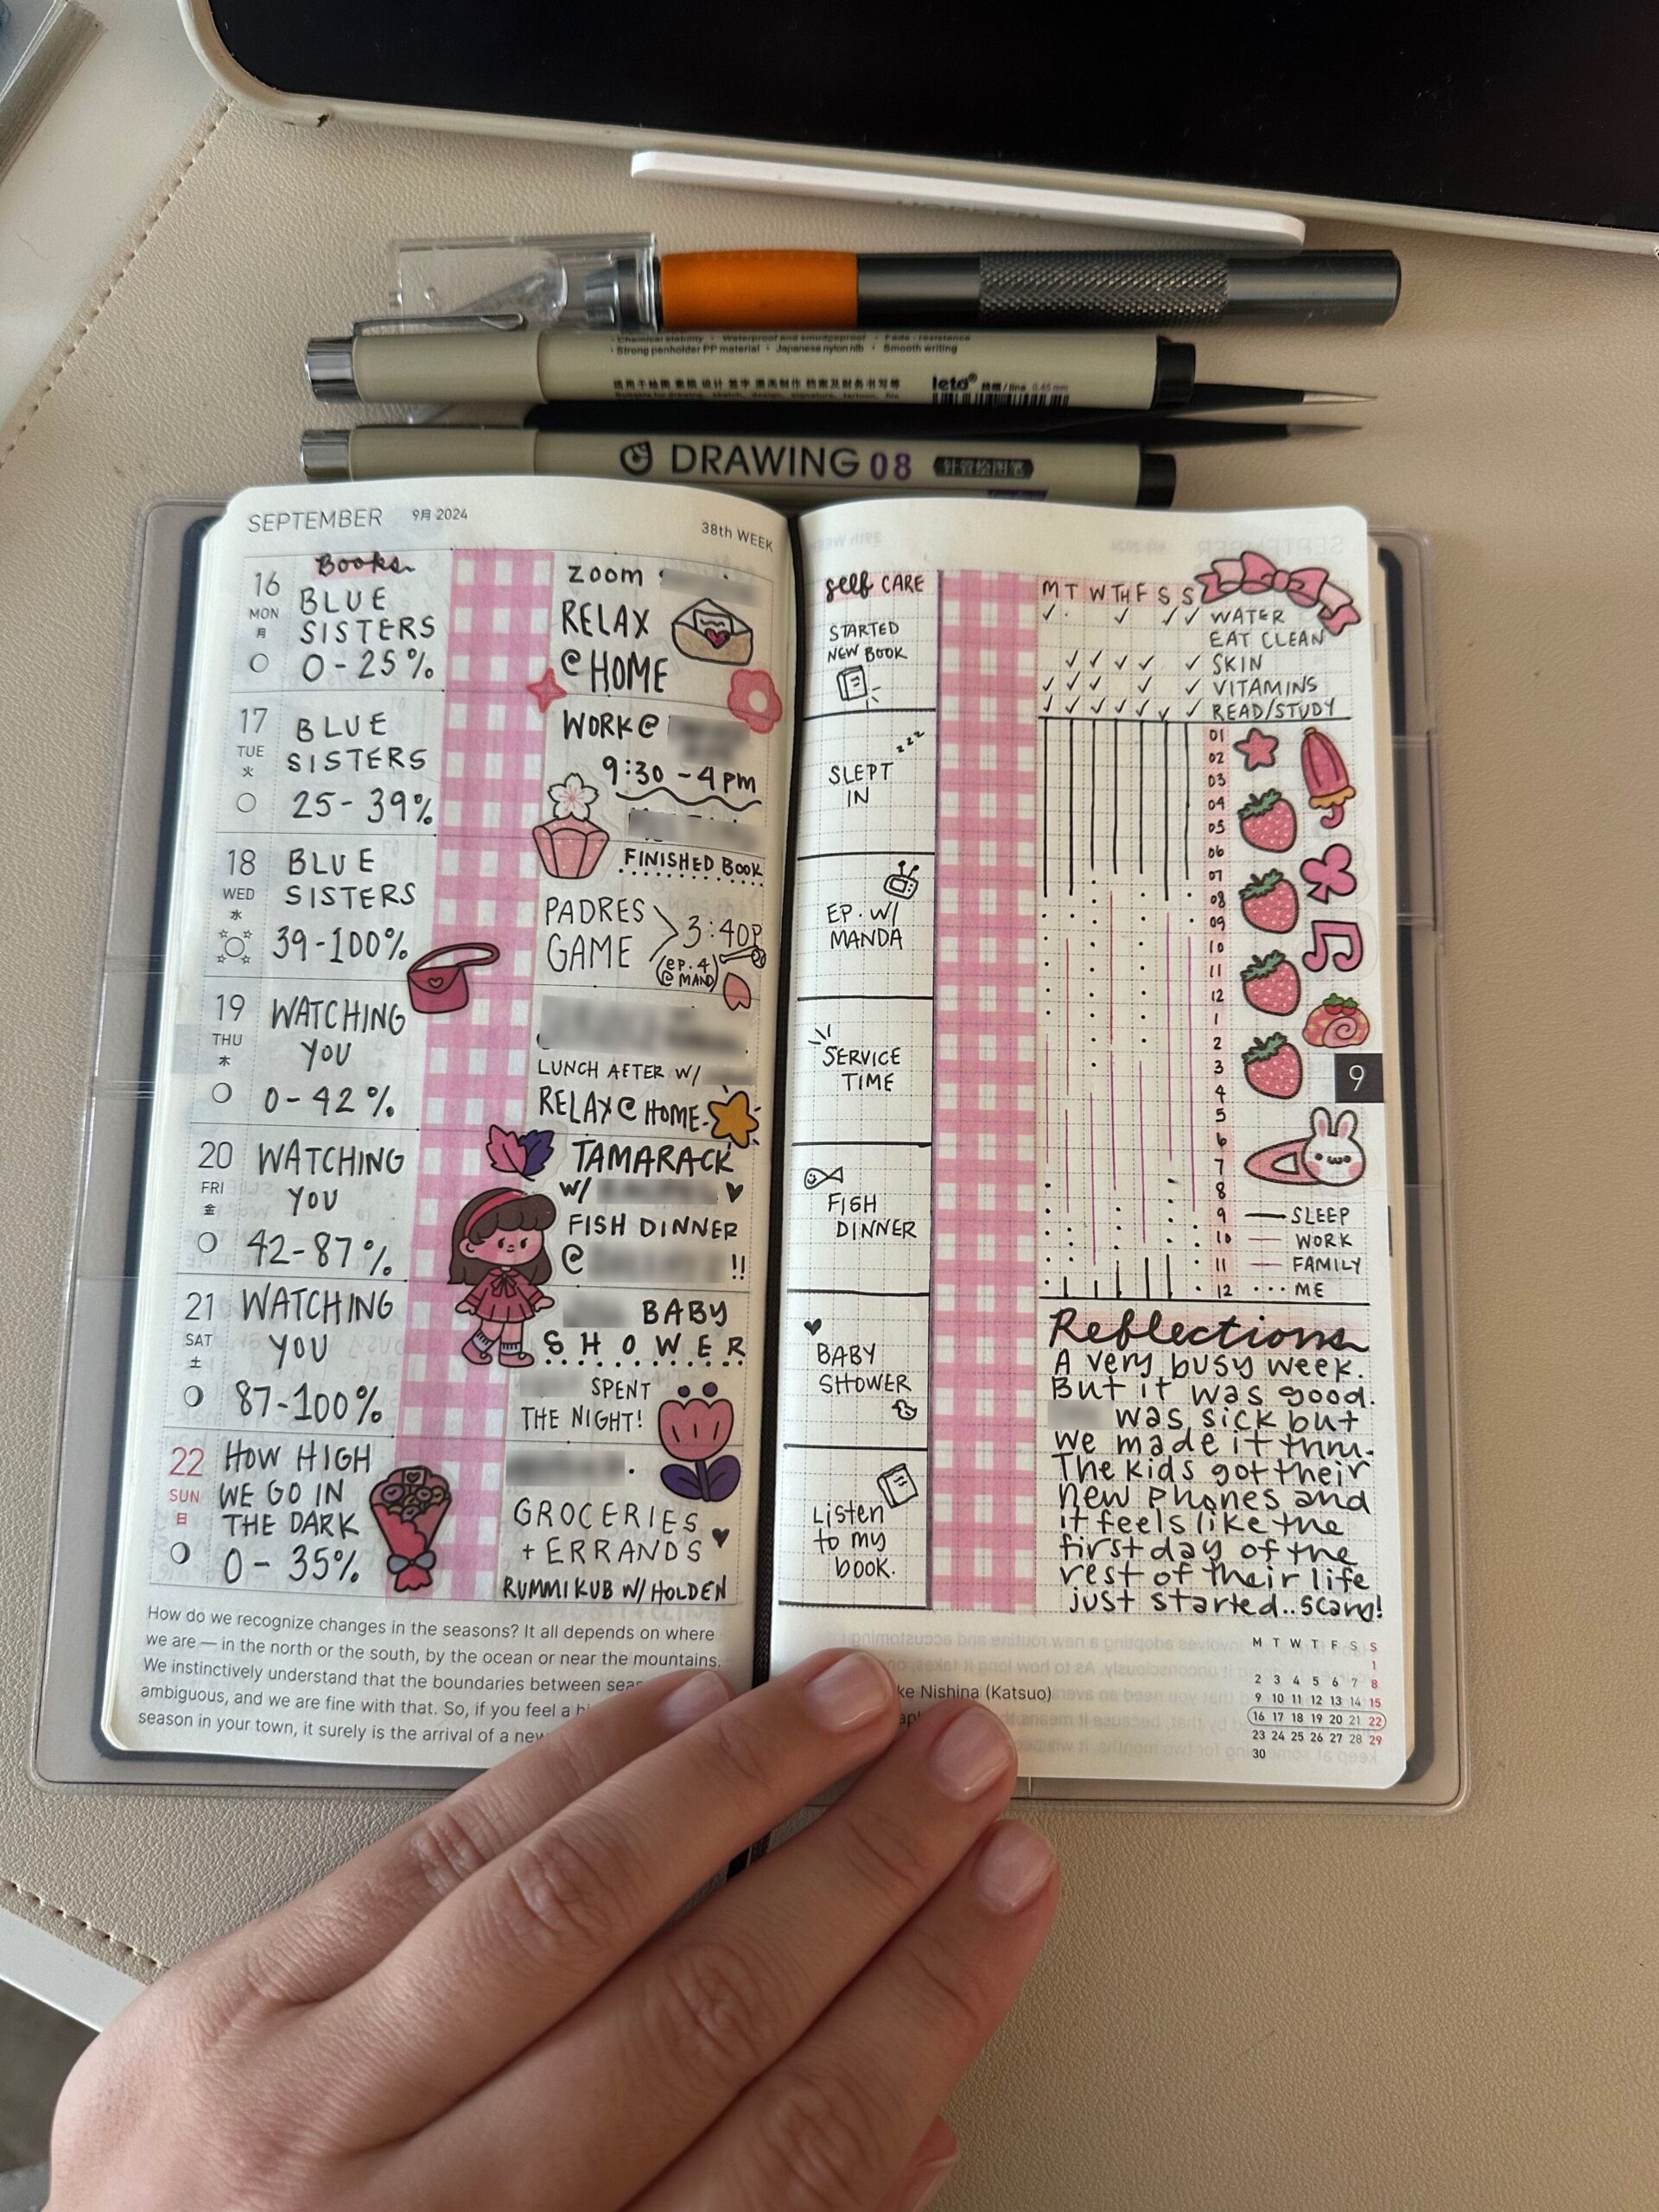 · Chemical stability · Waterproof and smudgeproof · Fade-resistance
· Strong penholder PP material · Japanese nylon nib · Smooth writing
leto® /line 0.45mm
Suitable for drawing, sketch, design, signature, cartoon, file
DRAWING 08
针管绘图笔
SEPTEMBER 9月 2024
38th WEEK
Books
16
MON
月
BLUE
SISTERS
0-25%
ZOOM
RELAX
@ HOME
17
TUE
火
BLUE
SISTERS
25-39%
WORK @
9:30 - 4pm
18
WED
水
BLUE
SISTERS
39-100%
FINISHED BOOK
PADRES
GAME
3:40P
(EP. 4
@ MAND)
19
THU
木
WATCHING
YOU
0-42%
LUNCH AFTER W/
RELAX @ HOME
20
FRI
金
WATCHING
YOU
42-87%
TAMARACK
W/
FISH DINNER
@ !!
21
SAT
土
WATCHING
YOU
87-100%
BABY
SHOWER
SPENT
THE NIGHT!
22
SUN
日
HOW HIGH
WE GO IN
THE DARK
0-35%
GROCERIES
+ ERRANDS
RUMMIKUB W/ HOLDEN
How do we recognize changes in the seasons? It all depends on where
we are — in the north or the south, by the ocean or near the mountains.
We instinctively understand that the boundaries between
ambiguous, and we are fine with that. So, if you feel a
season in your town, it surely is the arrival of a new
self CARE
STARTED
NEW BOOK
zzz
SLEPT
IN
EP. W/
MANDA
SERVICE
TIME
FISH
DINNER
BABY
SHOWER
Listen
to my
book.
M T W TH F S S
WATER
EAT CLEAN
SKIN
VITAMINS
READ/STUDY
01
02
03
04
05
06
07
08
09
10
11
12
1
2
3
4
5
6
7
8
9
10
11
12
9
SLEEP
WORK
FAMILY
ME
Reflections
A very busy week.
But it was good.
was sick but
we made it thru.
The kids got their
new phones and
it feels like the
first day of the
rest of their life
just started..scary!
ke Nishina (Katsuo)
M T W T F S S
1
2 3 4 5 6 7 8
9 10 11 12 13 14 15
16 17 18 19 20 21 22
23 24 25 26 27 28 29
30